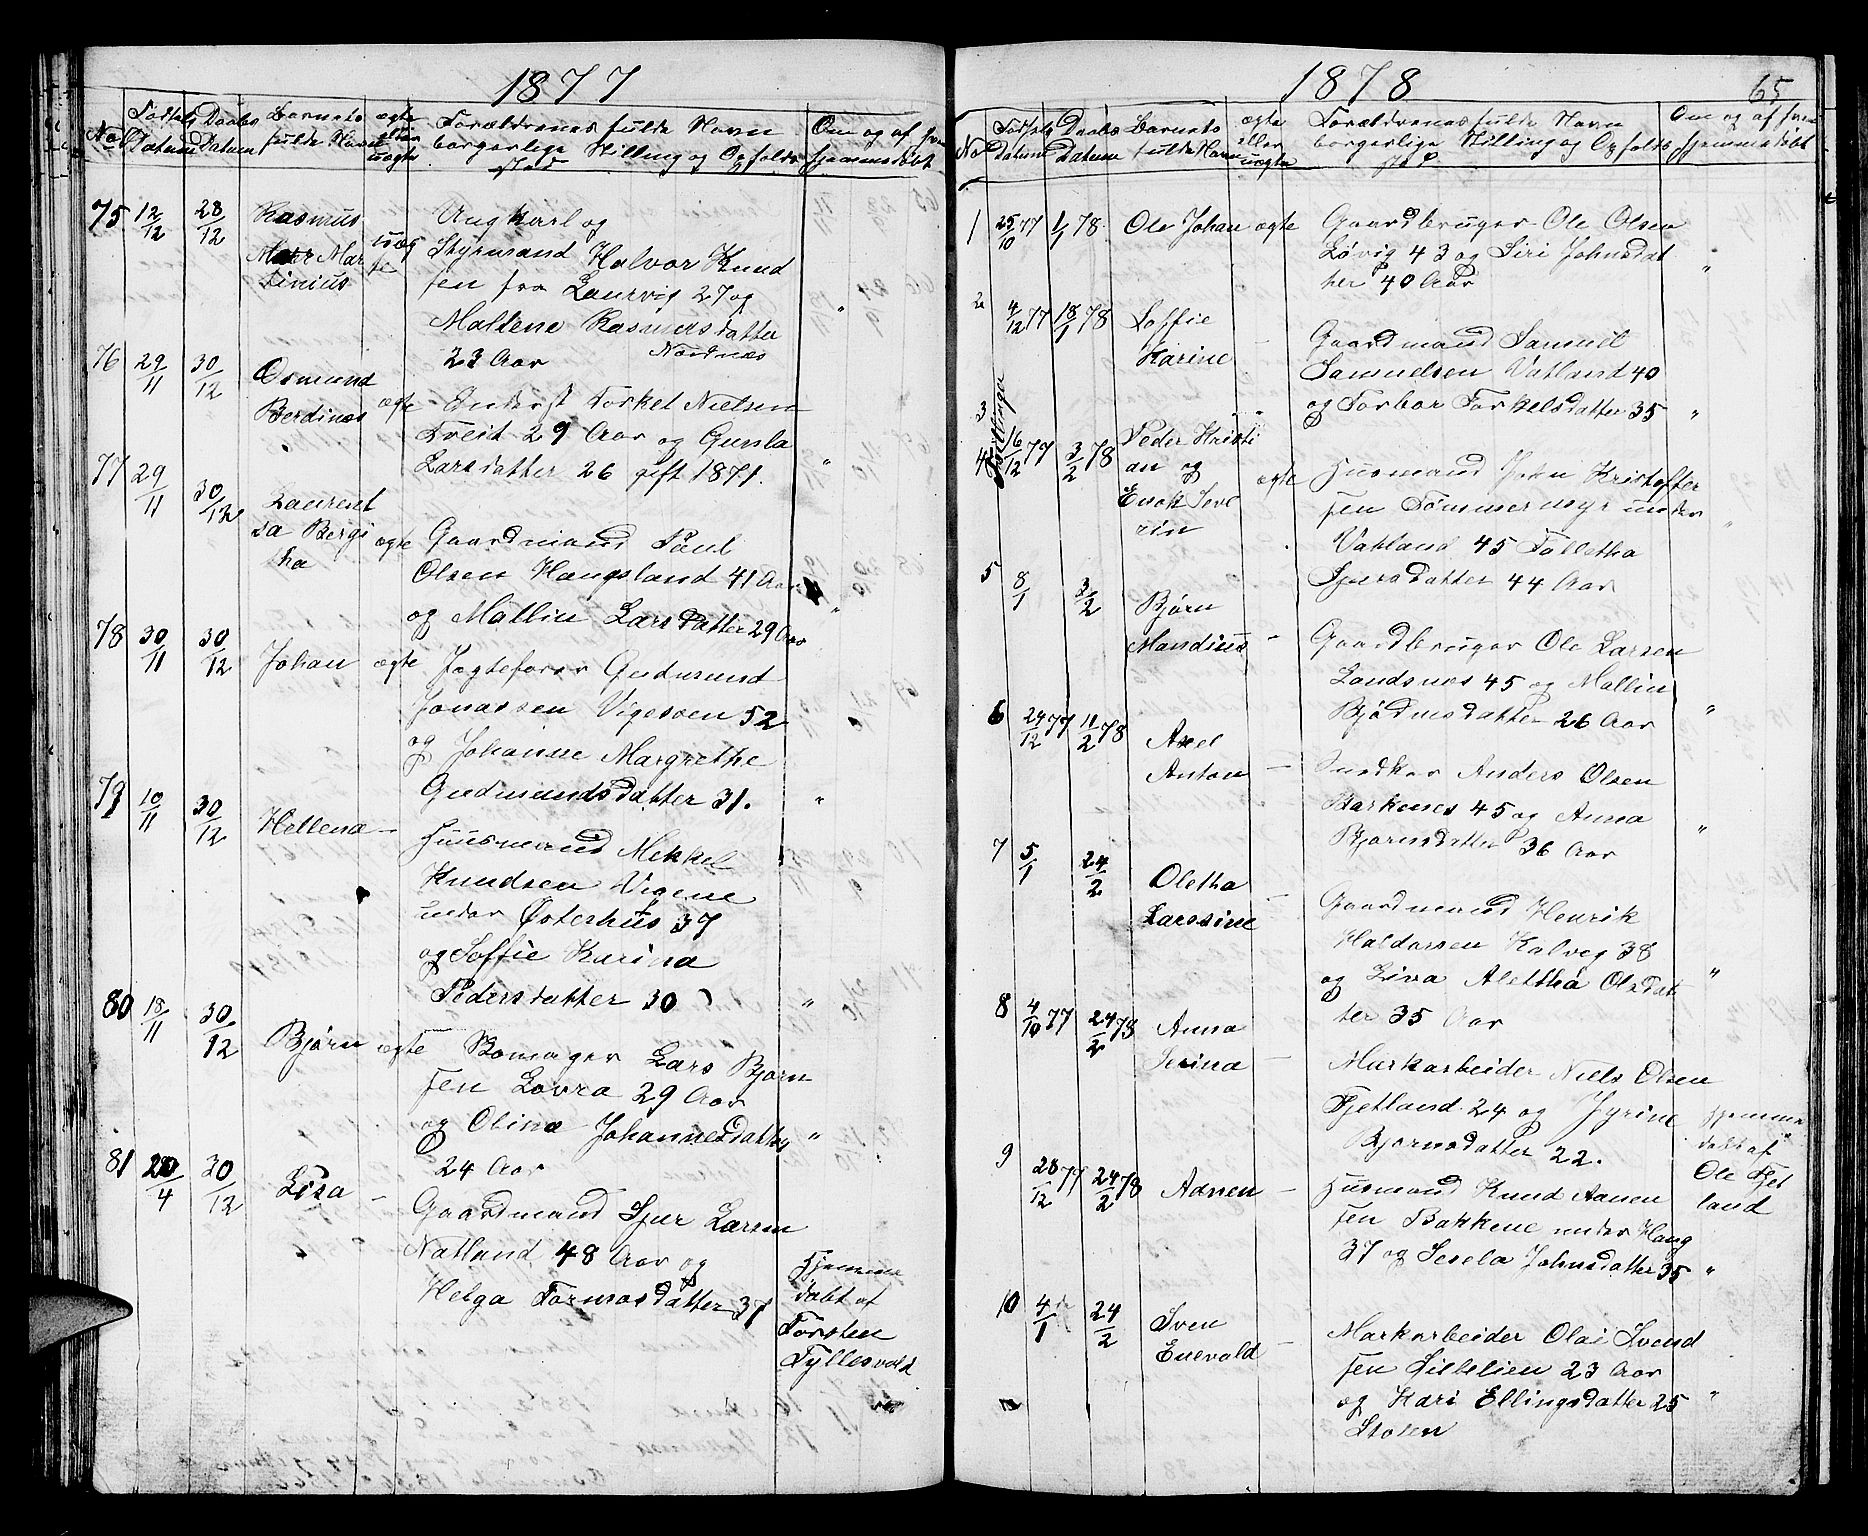 1877
No
Fødsels Datum
Daabs Datum
Barnets fulde Navn
ægte eller uægte
Forældrenes fulde Navn
borgerlige Stilling og Opholds
sted
Om og af hvem
hjemmedøbt
75 12/12 28/12 Rasmus
Mar Mar
tinius
uæg
te
Ungkarl og
Styrmand Halvor Knud
sen fra Laurvig 27 og
Maltene Rasmusdatter
23 Aar Nordnæs "
76 29/11 30/12 Osmund
Berdines ægte
Enderst Torkel Nielsen
Tveit 29 Aar og Gunla
Larsdatter 26 gift 1871. "
77 29/11 30/12 Laurent
sa Bergi
tha
ægte
Gaardmand Poul
Olsen Haugsland 41 Aar
og Mallin Larsdatter 29 Aar "
78 30/11 30/12 Johan ægte
Jagtefører Gudmund
Jonassen Vigesoen 52
og Johanne Margrethe
Gudmundsdatter 31. "
79 10/11 30/12 Hellena –
Huusmand Mekkel
Knudsen Vigene
under Østerhus 37
og Soffie Karina
Pedersdatter 30 "
80 18/11 30/12 Bjørn ægte
Skomager Lars Bjørn
sen Lovra 29 Aar
og Olina Johannesdatter "
24 Aar
81 20/4 30/12 Lisa –
Gaardmand Sjur Larsen
Natland 48 Aar og
Helga Tormosdatter 37
Hjemme
døbt af
Torsten
Tyllesvold
1878
65
No
Fødsels datum
Daabs Datum
Barnets fulde Navn
ægte eller uægte
Forældrenes fulde Navn
borgerlige Stilling og Opholds
sted
Om og af hvem
hjemmedøbt
1 25/10 77 1/1 78. Ole Johan ægte
Gaardbruger Ole Olsen
Løvig 43 og Siri Johnsdat
ter 40 Aar "
2 4/12 77 18/1 78 Soffie
Karine –
Gaardmand Samuel
Samuelsen Vatland 40
og Torbor Torkelsdatter 35 "
3
4 Tvillinger
16/12 77 3/2 78 Peder Kristi
an og
Enok Seve
rin
ægte
Husmand John Kristoffer
sen Tømmermyr under
Vatland 45 Tolletha
Sjursdatter 44 Aar "
5 8/1 3/2 Bjørn
Mandius –
Gaardbruger Ole Larsen
Landsnes 45 og Mallin
Bjødnsdatter 26 Aar "
6 24/12 77 11/2 78 Axel
Anton –
Snedker Anders Olsen
Barkenes 45 og Anna
Bjornsdatter 36 Aar "
7 5/1 24/2 Oletha
Larssine –
Gaardmand Henrik
Haldorsen Kalveg 38
og Liva Alettha Olsdat
ter 35 Aar "
8 4/10 77 24/2 78 Anna
Serina –
Markarbeider Niels Olsen
Fjetland 24 og Jyrine
Bjornsdatter 22.
hjemme
døbt af
Ole Fjet
land
9 28/12 77 24/2 78 Adnen –
Husmand Knud Aanen
sen Bakkene under Haug
37 og Sesela Johnsdatter 35 "
10 4/1 24/2 Sven
Enevold –
Markarbeider Olai Svend
sen Lillelien 23 Aar
og Kari Ellingsdatter 25 "
Stolen